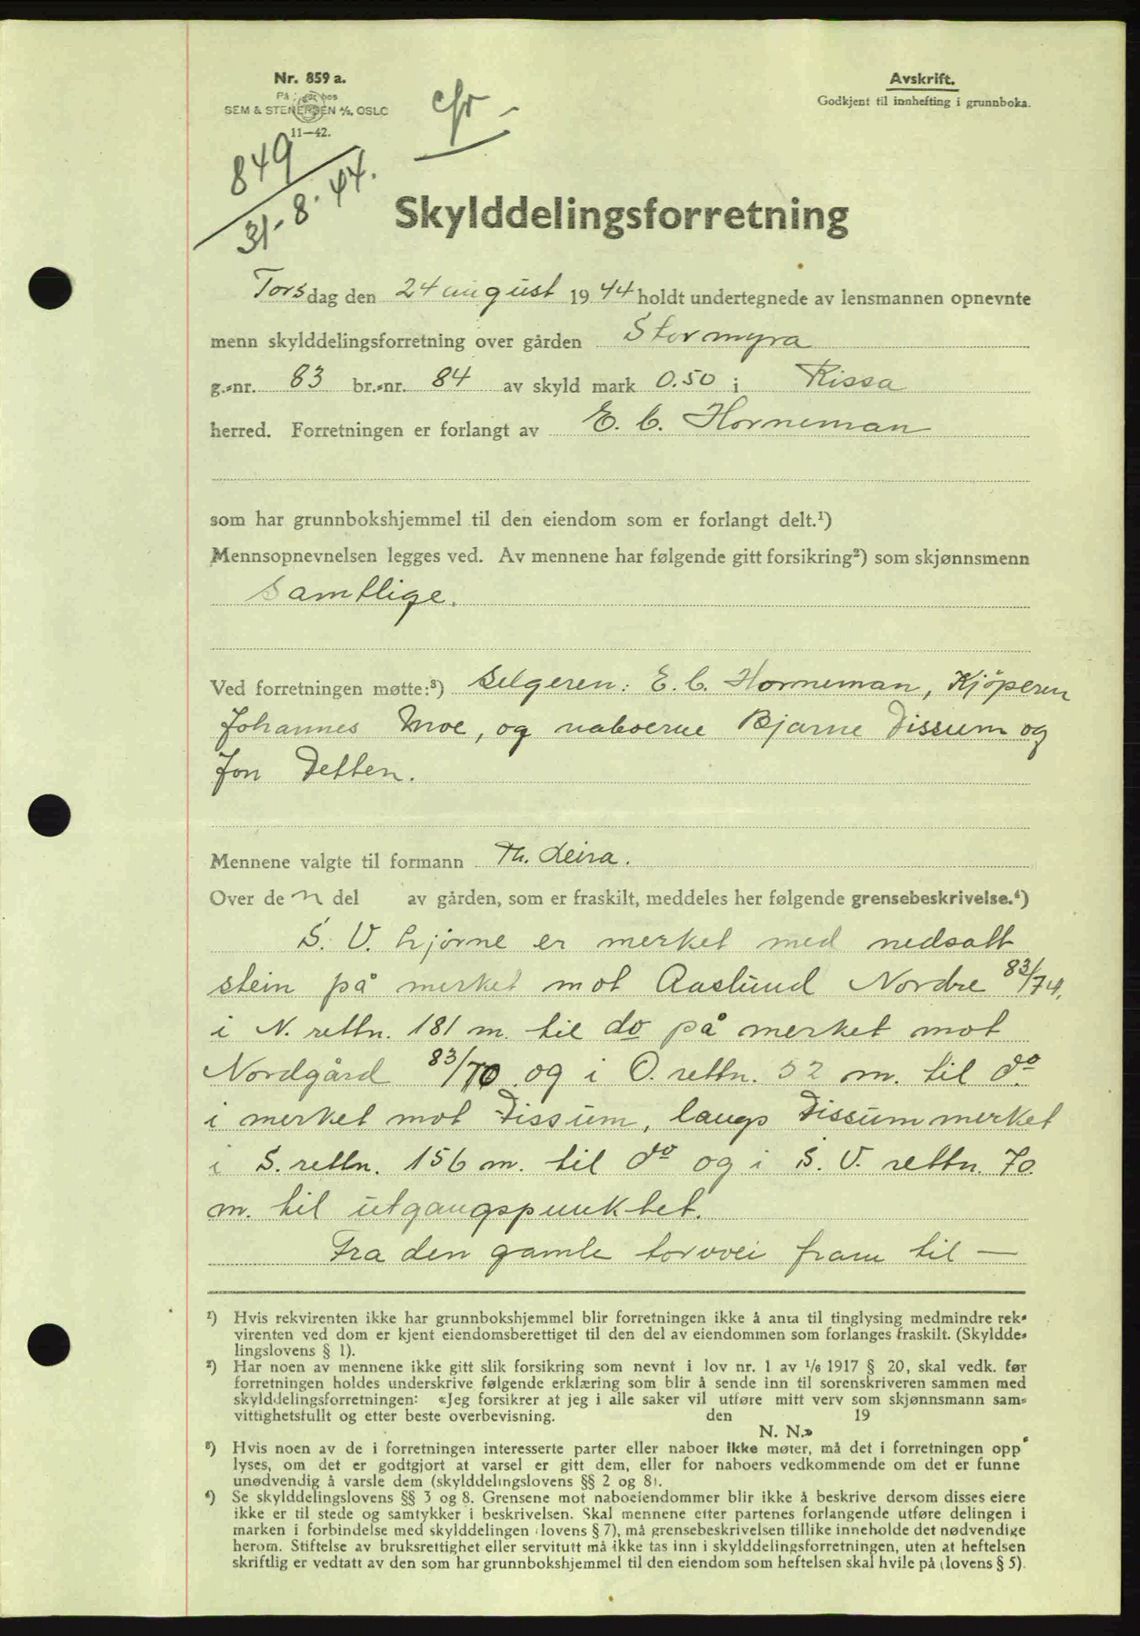 Nr. 859 a.
På lager hos
SEM & STENERSEN A/S, OSLO
11—42.
cfr -
Avskrift.
Godkjent til innhefting i grunnboka.
849
31-8.44.
Skylddelingsforretning
Torsdag den 24 august 1944 holdt undertegnede av lensmannen opnevnte
menn skylddelingsforretning over gården Stormyra
g.-nr. 83 br.-nr. 84 av skyld mark 0.50 i Rissa
herred. Forretningen er forlangt av E. C. Horneman
som har grunnbokshjemmel til den eiendom som er forlangt delt.¹)
Mennsopnevnelsen legges ved. Av mennene har følgende gitt forsikring²) som skjønnsmenn
samtlige.
Ved forretningen møtte:³) Selgeren: E. C. Horneman, Kjøperen
Johannes Moe, og naboerne Bjarne Dissum og
Jon Detten.
Mennene valgte til formann Th. Leira.
Over den del av gården, som er fraskilt, meddeles her følgende grensebeskrivelse.⁴)
S. V. hjørne er merket med nedsatt
stein på merket mot Aaslund Nordre 83/74,
i N. rettn. 181 m. til do på merket mot
Nordgård 83/70 og i O. rettn. 52 m. til do.
i merket mot Dissum, langs Dissummerket
i S. rettn. 156 m. til do og i S. V. rettn. 70
m. til utgangspunktet.
Fra den gamle torvvei fram til —
¹) Hvis rekvirenten ikke har grunnbokshjemmel blir forretningen ikke å anta til tinglysing medmindre rek-
virenten ved dom er kjent eiendomsberettiget til den del av eiendommen som forlanges fraskilt. (Skyldde-
lingslovens § 1).
²) Har noen av mennene ikke gitt slik forsikring som nevnt i lov nr. 1 av 1/6 1917 § 20, skal vedk. før
forretningen holdes underskrive følgende erklæring som blir å sende inn til sorenskriveren sammen med
skylddelingsforretningen: «Jeg forsikrer at jeg i alle saker vil utføre mitt verv som skjønnsmann sam-
vittighetsfullt og etter beste overbevisning. den 19
N. N.»
³) Hvis noen av de i forretningen interesserte parter eller naboer ikke møter, må det i forretningen opp
lyses, om det er godtgjort at varsel er gitt dem, eller for naboers vedkommende om det er funne
unødvendig å varsle dem (skylddelingslovens §§ 2 og 8).
⁴) Se skylddelingslovens §§ 3 og 8. Grensene mot naboeiendommer blir ikke å beskrive dersom disses eiere
ikke er til stede og samtykker i beskrivelsen. Skal mennene etter partenes forlangende utføre delingen i
marken i forbindelse med skylddelingen (lovens § 7), må grensebeskrivelsen tillike inneholde det nødvendige
herom. Stiftelse av bruksrettighet eller servitutt må ikke tas inn i skylddelingsforretningen, uten at heftelsen
skriftlig er vedtatt av den som har grunnbokshjemmel til den eiendom som heftelsen skal hvile på (lovens § 5).